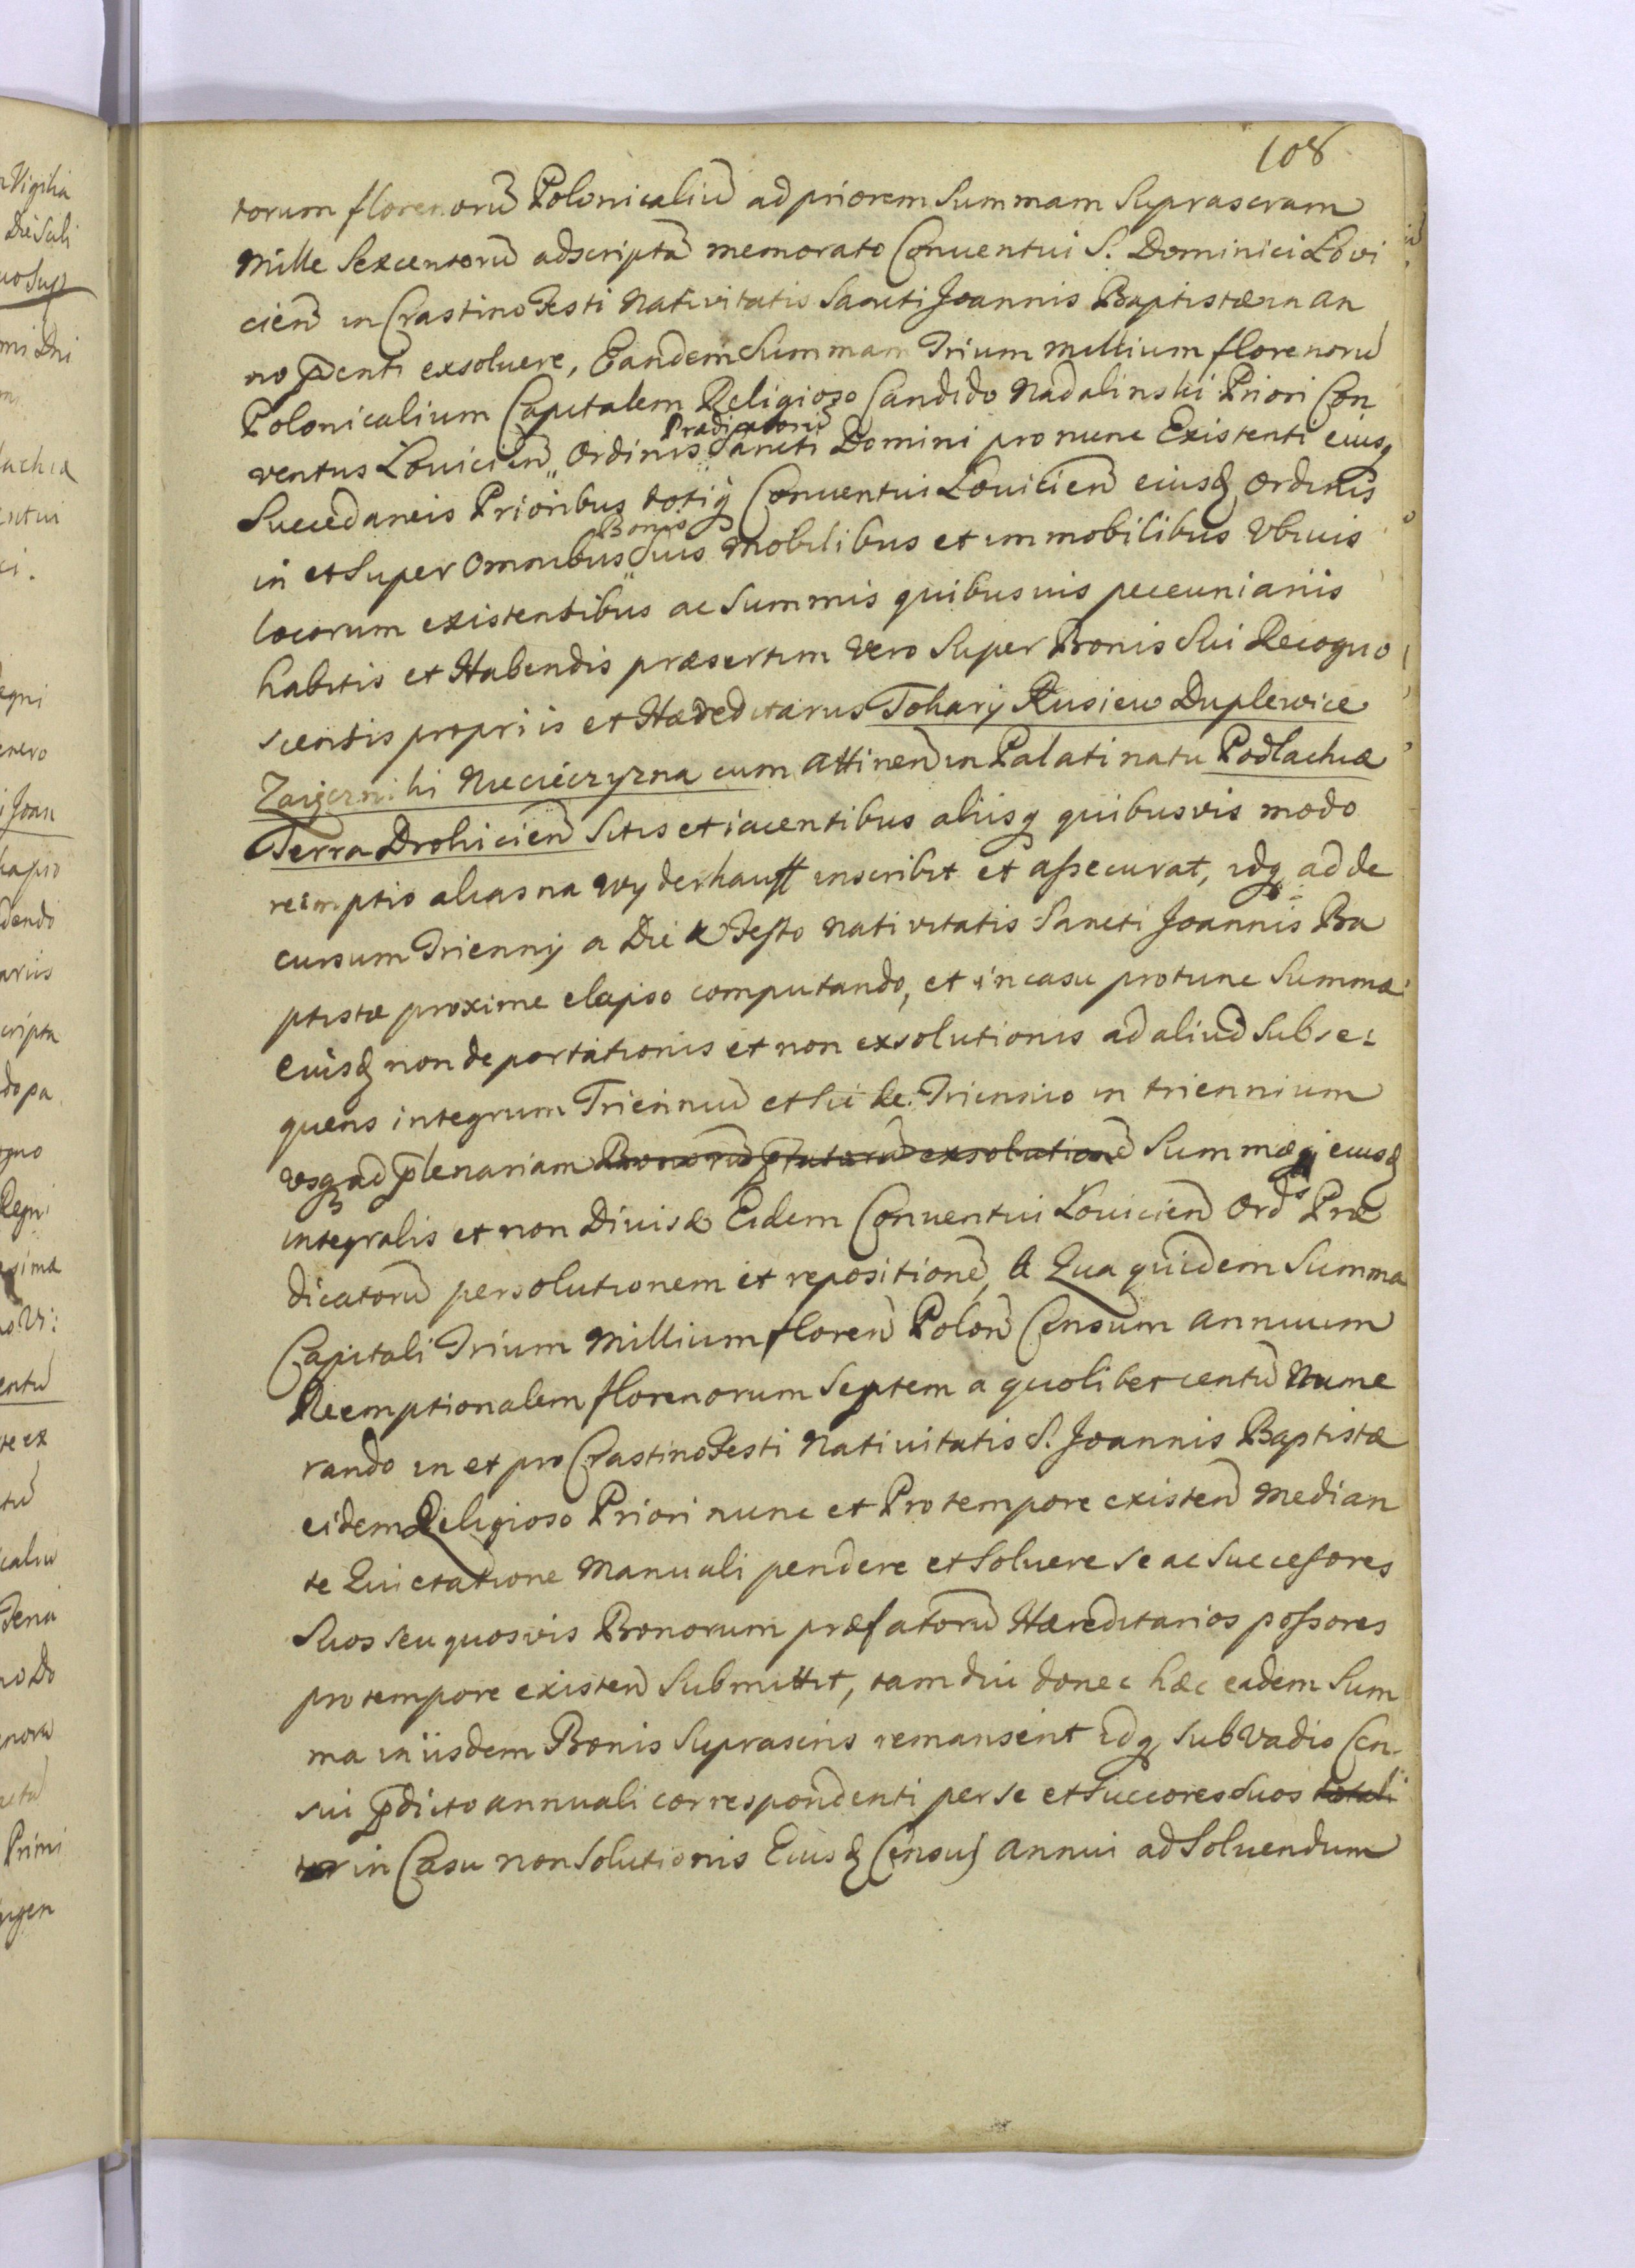 108
torum florenorũ Polonicaliũ ad priorem Summam Suprascram
Mille Sexcentorũ adscriptã memorato Conuentui S. Dominici Lovi
cień in Crastino Festi Nativitatis Sancti Joannis Baptistæ in an
no p̃denti exsoluere, Eandem Summam Trium Millium florenorũ
Polonicalium Capitalem Religioso Candido Nadalinski Priori Con
Prædicatorũ
ventus Louicień Ordinis Sancti Domini pro nunc Existenti eiusq
Succedaneis Prioribus totiq Conuentui Louicień eiusd Ordinis
Bonis
in et Super Omnibus Suis Mobilibus et immobilibus Vbiuis
locorum existentibus ac Summis quibusuis pecuniariis
habitis et Habendis præsertim Vero Super Bonis Sui Recogno
scentis propriis et Hædeditariis Tokary Rusiew Duplewice
Zaigrzniki Niecieczyzna cum attineñ in Palatinatu Podlachiæ
Terra Drohicień Sitis et iacentibus aliisq quibusvis modo
reemptio alias na wyderkauff inscribit et assecurat, idq ad de
cursum Trienny a Die Festo Nativitatis Sancti Joannis Ba
ptistæ proxime elapso computando, et in casu pro tunc Summæ
Eiusd non deportationis et non exsolutionis ad aliud Subse:
quens integrum Trienniũ et sic de Triennio in triennium
vsq ad plenariam Bonorũ p̃fatorũ exsolutionẽ Summæq eiusd
integralis et non Diuisæ Eidem Conuentui Louicień Ordˢ Præ
dicatorũ persolutionem et repositionẽ, A Qua quidem Summa
Capitali Trium Millium floreñ Poloñ Censum annuum
Reemptionalem florenorum Septem a quolibet centũ Nume
rando in et pro Crastino Festi Natiuitatis S. Joannis Baptistæ
eidem Religioso Priori nunc et Pro tempore existeñ Median
te Quictatione Manuali pendere et Soluere Se ac Succesores
Suos seu quosvis Bonorum præfatorũ Hæreditarios possores
pro tempore existeñ Submittit, tam diu donec hæc eadem Sum
ma in iisdem Bonis Suprascris remanserit idq Sub Vadio Cen
sui p̃dicto annuali correspondenti per se et Succores Suos totali
ter in Casu non Solutionis Eiusd Census annui ad Soluendum